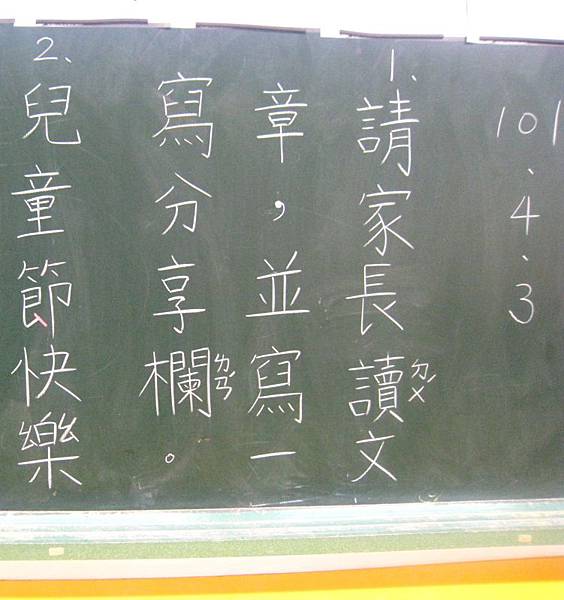 101、4、3
1、請家長讀ㄉㄨˊ文
章，並寫一
寫分享欄ㄌㄢˊ。
2、兒童節快樂